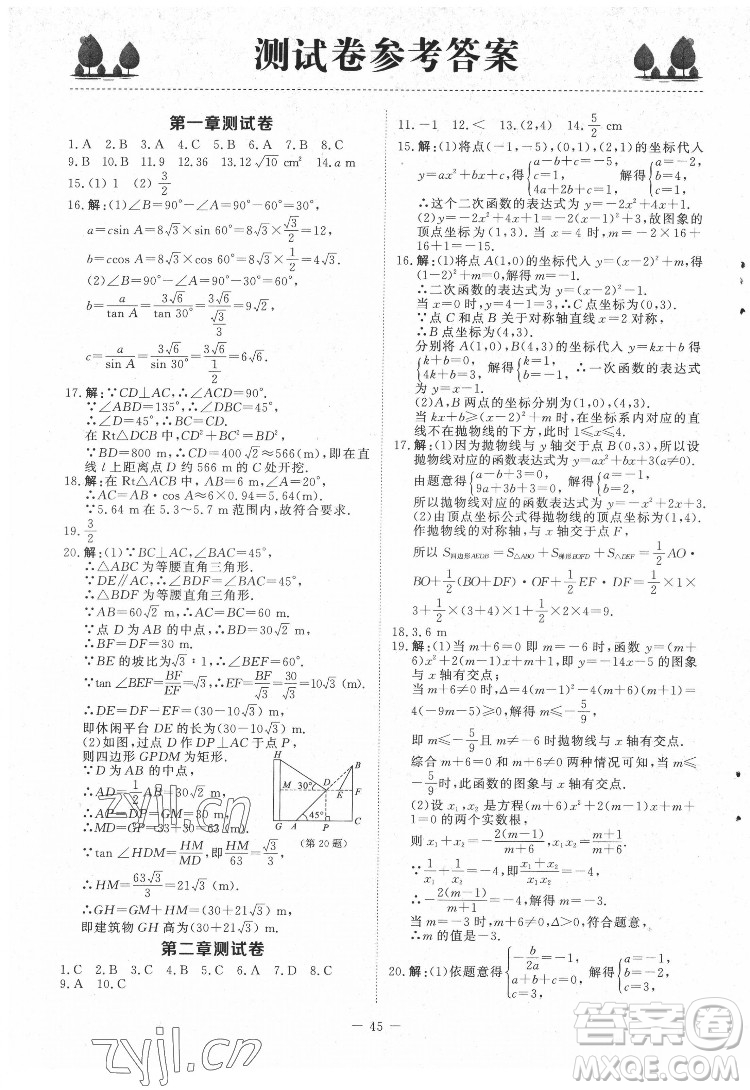 测试卷参考答案
第一章测试卷
1.A 2.B 3.A 4.C 5.B 6.A 7.B 8.C
9.B 10.A 11.9 12.36 13.12√10 cm² 14.a m
15.(1) 1 (2) 3/2
16.解:(1)∠B=90°-∠A=90°-60°=30°,
a=csin A=8√3×sin 60°=8√3×√3/2=12,
b=ccos A=8√3×cos 60°=8√3×1/2=4√3.
(2)∠B=90°-∠A=90°-30°=60°,
b=a/tan A=3√6/tan 30°=3√6/(√3/3)=9√2,
c=a/sin A=3√6/sin 30°=3√6/(1/2)=6√6.
17.解:∵CD⊥AC,∴∠ACD=90°.
∵∠ABD=135°,∴∠DBC=45°.
∴∠D=45°.∴CB=CD.
在Rt△DCB中,CD²+BC²=BD².
∴2CD²=800².∴CD=400√2≈566(m),即在直
线l上距离点D约566 m的C处开挖.
18.解:在Rt△ACB中,AB=6 m,∠A=20°,
∴AC=AB·cos A≈6×0.94=5.64(m).
∵5.64 m在5.3~5.7 m范围内,故符合要求.
19.3/2
20.解:(1)∵BC⊥AC,∠BAC=45°,
∴△ABC为等腰直角三角形.
∵DE∥AC,∴∠BDF=∠BAC=45°.
∴△BDF为等腰直角三角形.
∵AB=60√2 m,∴AC=BC=60 m.
∵点D为AB的中点,∴BD=30√2 m.
∴BF=DF=30 m.
∵BE的坡比为√3∶1,∴∠BEF=60°.
∵tan∠BEF=BF/EF=√3,∴EF=30/√3=10√3(m).
∴DE=DF-EF=(30-10√3)(m),
即休闲平台DE的长为(30-10√3)m.
(2)如图,过点D作DP⊥AC于点P,
则四边形PGMD为矩形.
∵D为AB的中点,
∴AD=1/2AB=30√2 m.
H
B
M
30°
D
E
F
45°
G
A
P
C
(第20题)
∵tan∠HDM=HM/MD,即HM/63=√3/3,
∴HM=63√3/3=21√3(m),
∴GH=GM+HM=(30+21√3)(m),
即建筑物GH高为(30+21√3)m.
第二章测试卷
1.C 2.B 3.D 4.B 5.C 6.A 7.D 8.D
9.A 10.C
11.-1 12.< 13.(2,4) 14.5/2 cm
15.解:(1)将点(-1,-5),(0,1),(2,1)的坐标代入
y=ax²+bx+c,得{a-b+c=-5, c=1, 4a+2b+c=1, 解得{a=-2, b=4, c=1,
∴这个二次函数的表达式为y=-2x²+4x+1.
(2)y=-2x²+4x+1=-2(x-1)²+3,故图象的
顶点坐标为(1,3).当x=4时,m=-2×16+
16+1=-15.
16.解:(1)将点A(1,0)的坐标代入y=(x-2)²+m,得
(1-2)²+m=0,解得m=-1.
∴二次函数的表达式为y=(x-2)²-1.
当x=0时,y=4-1=3,∴C点坐标为(0,3).
∵点C和点B关于对称轴直线x=2对称,
∴B点坐标为(4,3).
分别将A(1,0),B(4,3)的坐标代入y=kx+b
得{k+b=0, 4k+b=3, 解得{k=1, b=-1, ∴一次函数的表
达式为y=x-1.
(2)A,B两点的坐标分别为(1,0),(4,3).
当kx+b≥(x-2)²+m时,在坐标系内对应的直
线不在抛物线的下方,故此时1≤x≤4.
17.解:(1)因为抛物线与y轴交于点B(0,3),所以设
抛物线对应的函数表达式为y=ax²+bx+3(a≠0).
由题意得{a-b+3=0, 9a+3b+3=0, 解得{a=-1, b=2,
所以抛物线对应的函数表达式为y=-x²+2x+3.
(2)由顶点坐标公式得抛物线的顶点坐标为(1,4).
作抛物线的对称轴与x轴交于点F,
所以S四边形AEDB=S△ABO+S梯形BOFD+S△DEF=1/2AO·
BO+1/2(BO+DF)·OF+1/2EF·DF=1/2×1×
3+1/2×(3+4)×1+1/2×2×4=9.
18.3.6 m
19.解:(1)当m+6=0即m=-6时,函数y=(m+
6)x²+2(m-1)x+m+1=-14x-5的图象
与x轴有交点;
当m+6≠0时,Δ=4(m-1)²-4(m+6)(m+1)=
4(-9m-5)≥0,解得m≤-5/9,
即m≤-5/9且m≠-6时抛物线与x轴有交点.
综合m+6=0和m+6≠0两种情况可知,m≤
-5/9时,此函数的图象与x轴有交点.
(2)设x₁,x₂是方程(m+6)x²+2(m-1)x+m+1=0
的两个实数根,
则x₁+x₂=-2(m-1)/(m+6),x₁x₂=(m+1)/(m+6).
∵1/x₁+1/x₂=-4,即(x₁+x₂)/(x₁x₂)=-4,
∴-2(m-1)/(m+1)=-4,解得m=-3.
当m=-3时,m+6≠0,Δ>0,符合题意,
∴m的值是-3.
20.解:(1)依题意得{-b/2a=-1, a+b+c=0, c=3, 解得{a=-1, b=-2, c=3,
— 45 —
zyjl.cn
zyjl.cn
答案卷
MXQE.COM